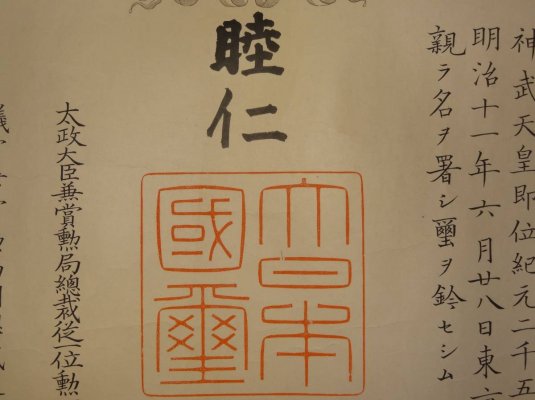 神武天皇即位紀元二千五
明治十一年六月廿八日東
親ラ名ヲ署シ璽ヲ鈐セシム
睦仁
大日本
國璽
太政大臣兼賞勲局總裁従一位勲